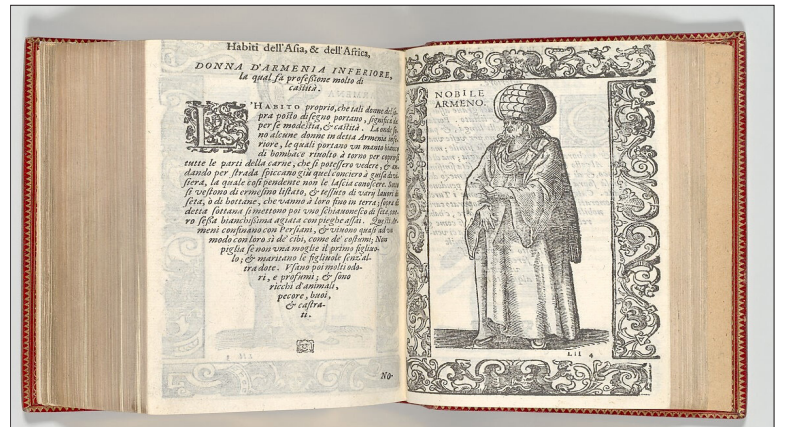 Habiti dell'Asia, & dell'Africa,
DONNA D'ARMENIA INFERIORE,
la qual fà profeßione molto di
castità.
L'HABITO proprio, che tali donne del so
pra posto disegno portano, significa in
per se modestia, & castità. La onde so
no alcune donne in detta Armenia infe
riore, le quali portano vn manto bianco
di bombace riuolto à torno per coprirsi
tutte le parti della carne, che si potessero vedere, & an
dando per strada spiccano giù quel conciero à guisa di vi
siera, la quale così pendente non le lascia conoscere.
si vestono di ermesino listato, & tessuto di varij lauori di
seta, ò di bottane, che vanno à loro fino in terra; sopra di
detta sottana si mettono poi vno schiauonesco di seta,
ro seßa bianchißima agiata con pieghe assai. Questi Ar
meni confinano con Persiani, & viuono quasi ad vn
modo con loro sì de' cibi, come de' costumi; Non
piglia se non vna moglie il primo figliuo-
lo; & maritano le figliuole senz'al-
tra dote. Vsano poi molti odo-
ri, e profumi; & sono
ricchi d'animali,
pecore, buoi,
& castra-
ti.
No-
NOBILE
ARMENO.
Lll 4